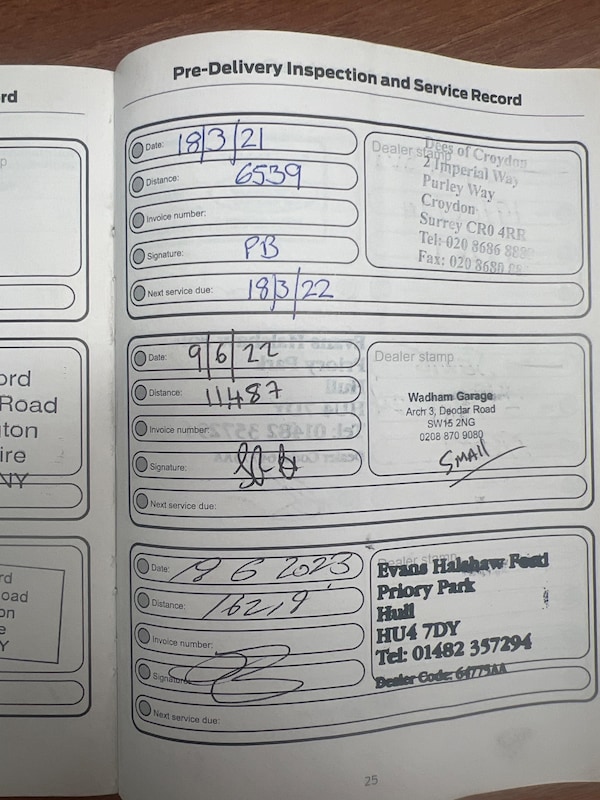 rd
p
ord
Road
gton
ire
NY
rd
oad
on
e
Y
Pre-Delivery Inspection and Service Record
Date: 18/3/21
Distance: 6539
Invoice number:
Signature: PB
Next service due: 18/3/22
Dealer stamp
Dees of Croydon
2 Imperial Way
Purley Way
Croydon
Surrey CR0 4RR
Tel: 020 8686
Fax: 020 8680
Date: 9/6/22
Distance: 11487
Invoice number:
Signature:
Next service due:
Dealer stamp
Wadham Garage
Arch 3, Deodar Road
SW15 2NG
0208 870 9080
SMALL
Date: 18 6 2023
Distance: 16219
Invoice number:
Signature:
Next service due:
Dealer stamp
Evans Halshaw Ford
Priory Park
Hull
HU4 7DY
Tel: 01482 357294
Dealer Code: 64775AA
25